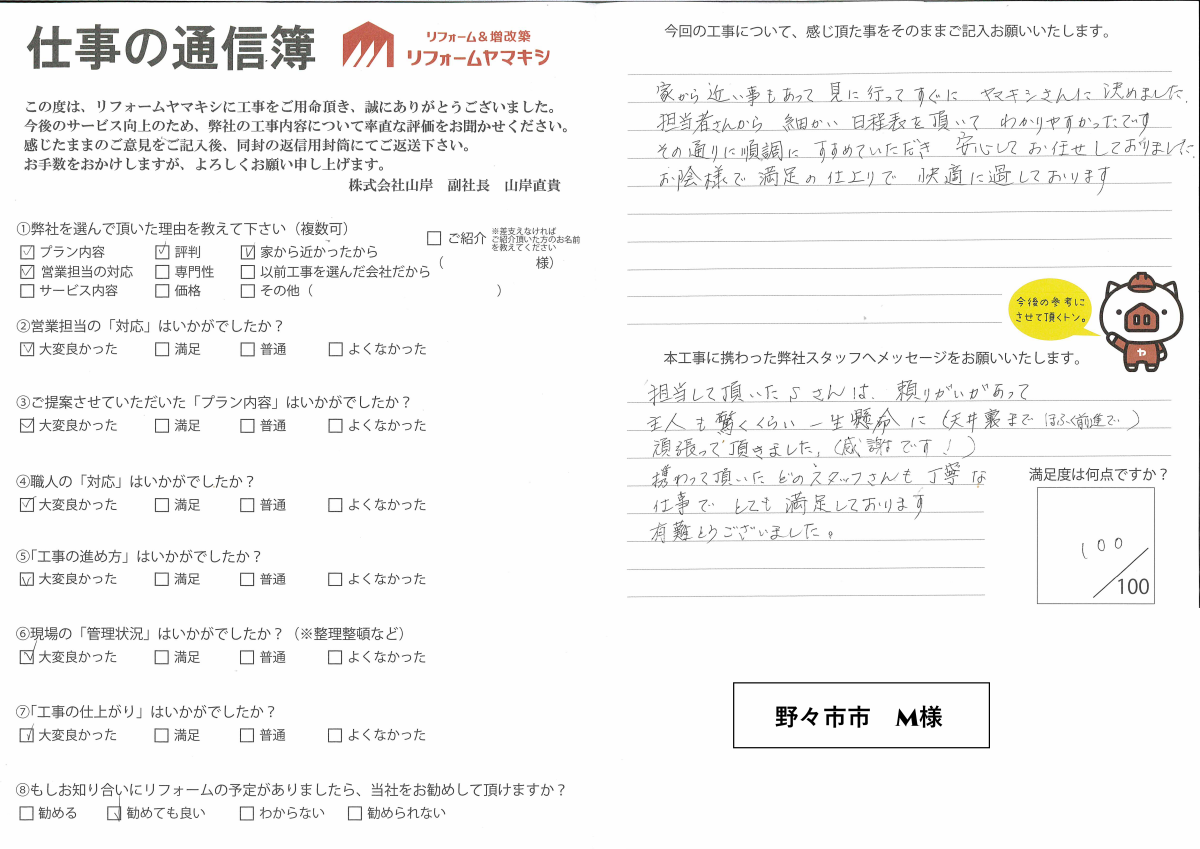 仕事の通信簿
リフォーム＆増改築
リフォームヤマキシ
この度は、リフォームヤマキシに工事をご用命頂き、誠にありがとうございました。
今後のサービス向上のため、弊社の工事内容について率直な評価をお聞かせください。
感じたままのご意見をご記入後、同封の返信用封筒にてご返送下さい。
お手数をおかけしますが、よろしくお願い申し上げます。
株式会社山岸　副社長　山岸直貴
①弊社を選んで頂いた理由を教えて下さい（複数可）
☑ プラン内容 ☑ 評判 ☑ 家から近かったから
☑ 営業担当の対応 □ 専門性 □ 以前工事を選んだ会社だから
□ サービス内容 □ 価格 □ その他（　　　）
□ ご紹介 ※差支えなければ
ご紹介頂いた方のお名前
を教えてください
（　　　様）
②営業担当の「対応」はいかがでしたか？
☑ 大変良かった □ 満足 □ 普通 □ よくなかった
③ご提案させていただいた「プラン内容」はいかがでしたか？
☑ 大変良かった □ 満足 □ 普通 □ よくなかった
④職人の「対応」はいかがでしたか？
☑ 大変良かった □ 満足 □ 普通 □ よくなかった
⑤「工事の進め方」はいかがでしたか？
☑ 大変良かった □ 満足 □ 普通 □ よくなかった
⑥現場の「管理状況」はいかがでしたか？（※整理整頓など）
☑ 大変良かった □ 満足 □ 普通 □ よくなかった
⑦「工事の仕上がり」はいかがでしたか？
☑ 大変良かった □ 満足 □ 普通 □ よくなかった
⑧もしお知り合いにリフォームの予定がありましたら、当社をお勧めして頂けますか？
□ 勧める ☑ 勧めても良い □ わからない □ 勧められない
今回の工事について、感じ頂た事をそのままご記入お願いいたします。
家から近い事もあって 見に行ってすぐに ヤマキシさんに 決めました.
担当者さんから 細かい 日程表を頂いて わかりやすかったです
その通りに順調に すすめていただき 安心してお任せしておりました.
お陰様で 満足の仕上りで 快適に過しております
今後の参考に
させて頂くトン。
ヤ
本工事に携わった弊社スタッフへメッセージをお願いいたします。
担当して頂いた Sさんは、頼りがいがあって
主人も驚くくらい 一生懸命に (天井裏まで ほふく前進で)
頑張って頂きました。(感謝です！)
携わって頂いた どのスタッフさんも 丁寧な
仕事で とても 満足しております
有難とうございました。
満足度は何点ですか？
100
/100
野々市市　M様